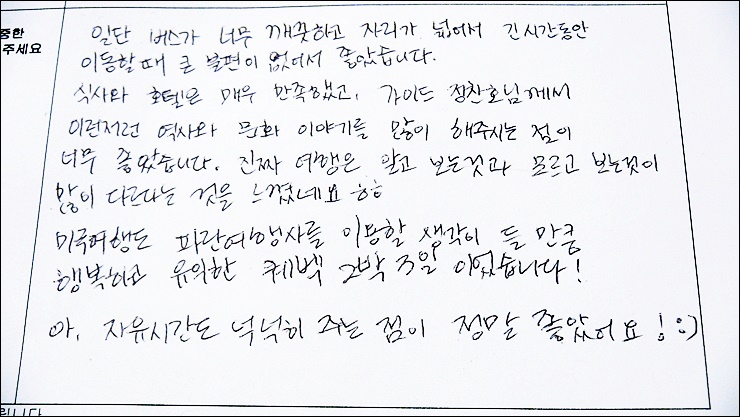 중한
주세요
일단 버스가 너무 깨끗하고 자리가 넓어서 긴시간동안
이동할때 큰 불편이 없어서 좋았습니다.
식사와 호텔은 매우 만족했고, 가이드 정찬호님께서
이런저런 역사와 문화 이야기를 많이 해주시는 점이
너무 좋았습니다. 진짜 여행은 알고 보는것과 모르고 보는것이
많이 다르다는 것을 느꼈네요 ㅎㅎ
미국여행도 파란여행사를 이용할 생각이 들 만큼
행복하고 유익한 퀘벡 2박 3일 이었습니다!
아, 자유시간도 넉넉히 주는 점이 정말 좋았어요! :)
립니다